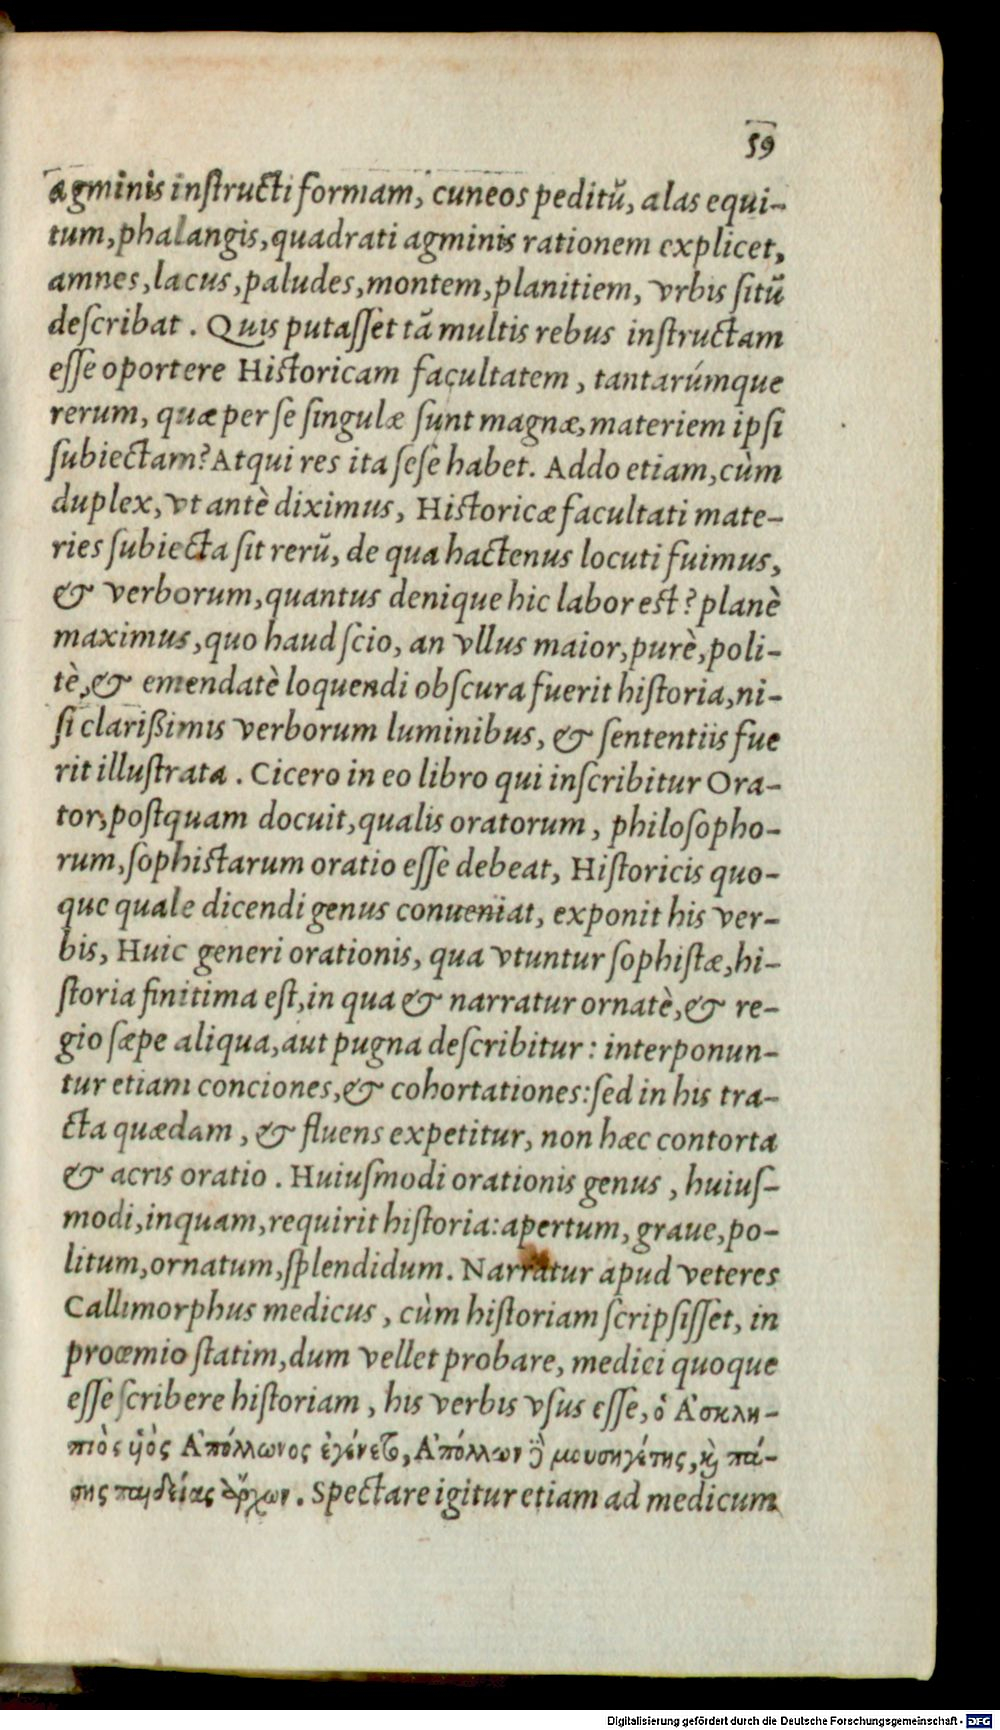 59
agminis instructi formam, cuneos peditũ, alas equi-
tum, phalangis, quadrati agminis rationem explicet,
amnes, lacus, paludes, montem, planitiem, vrbis sitũ
describat. Quis putasset tã multis rebus instructam
esse oportere Historicam facultatem, tantarúmque
rerum, quæ per se singulæ sunt magnæ, materiem ipsi
subiectam? Atqui res ita sese habet. Addo etiam, cùm
duplex, vt antè diximus, Historicæ facultati mate-
ries subiecta sit rerũ, de qua hactenus locuti fuimus,
& verborum, quantus denique hic labor est? planè
maximus, quo haud scio, an vllus maior, purè, poli-
tè, & emendatè loquendi obscura fuerit historia, ni-
si clarißimis verborum luminibus, & sententiis fue
rit illustrata. Cicero in eo libro qui inscribitur Ora-
tor, postquam docuit, qualis oratorum, philosopho-
rum, sophistarum oratio esse debeat, Historicis quo-
que quale dicendi genus conueniat, exponit his ver-
bis, Huic generi orationis, qua vtuntur sophistæ, hi-
storia finitima est, in qua & narratur ornatè, & re-
gio sæpe aliqua, aut pugna describitur: interponun-
tur etiam conciones, & cohortationes: sed in his tra-
cta quædam, & fluens expetitur, non hæc contorta
& acris oratio. Huiusmodi orationis genus, huius-
modi, inquam, requirit historia: apertum, graue, po-
litum, ornatum, splendidum. Narratur apud veteres
Callimorphus medicus, cùm historiam scripsisset, in
proœmio statim, dum vellet probare, medici quoque
esse scribere historiam, his verbis vsus esse, ὁ Ἀσκλη-
πιὸς ὑὸς Ἀπόλλωνος ἐγένετο, Ἀπόλλων δὲ μουσηγέτης, καὶ πά-
σης παιδείας ἄρχων. Spectare igitur etiam ad medicum
Digitalisierung gefördert durch die Deutsche Forschungsgemeinschaft - DFG